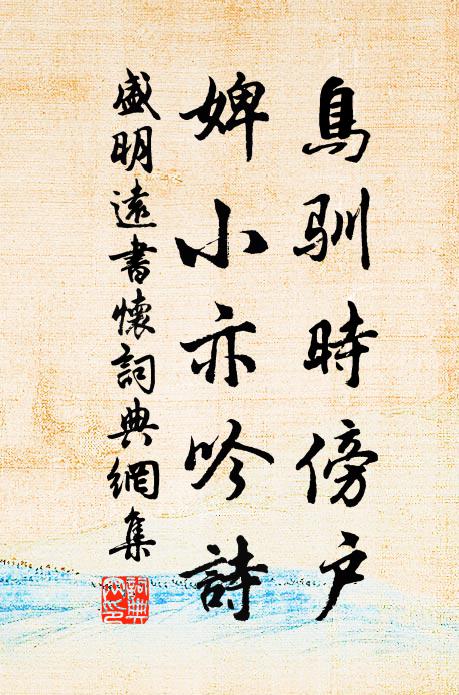 鳥馴時傍戶
婢小亦吟詩
盛明遠書懷詞典網集